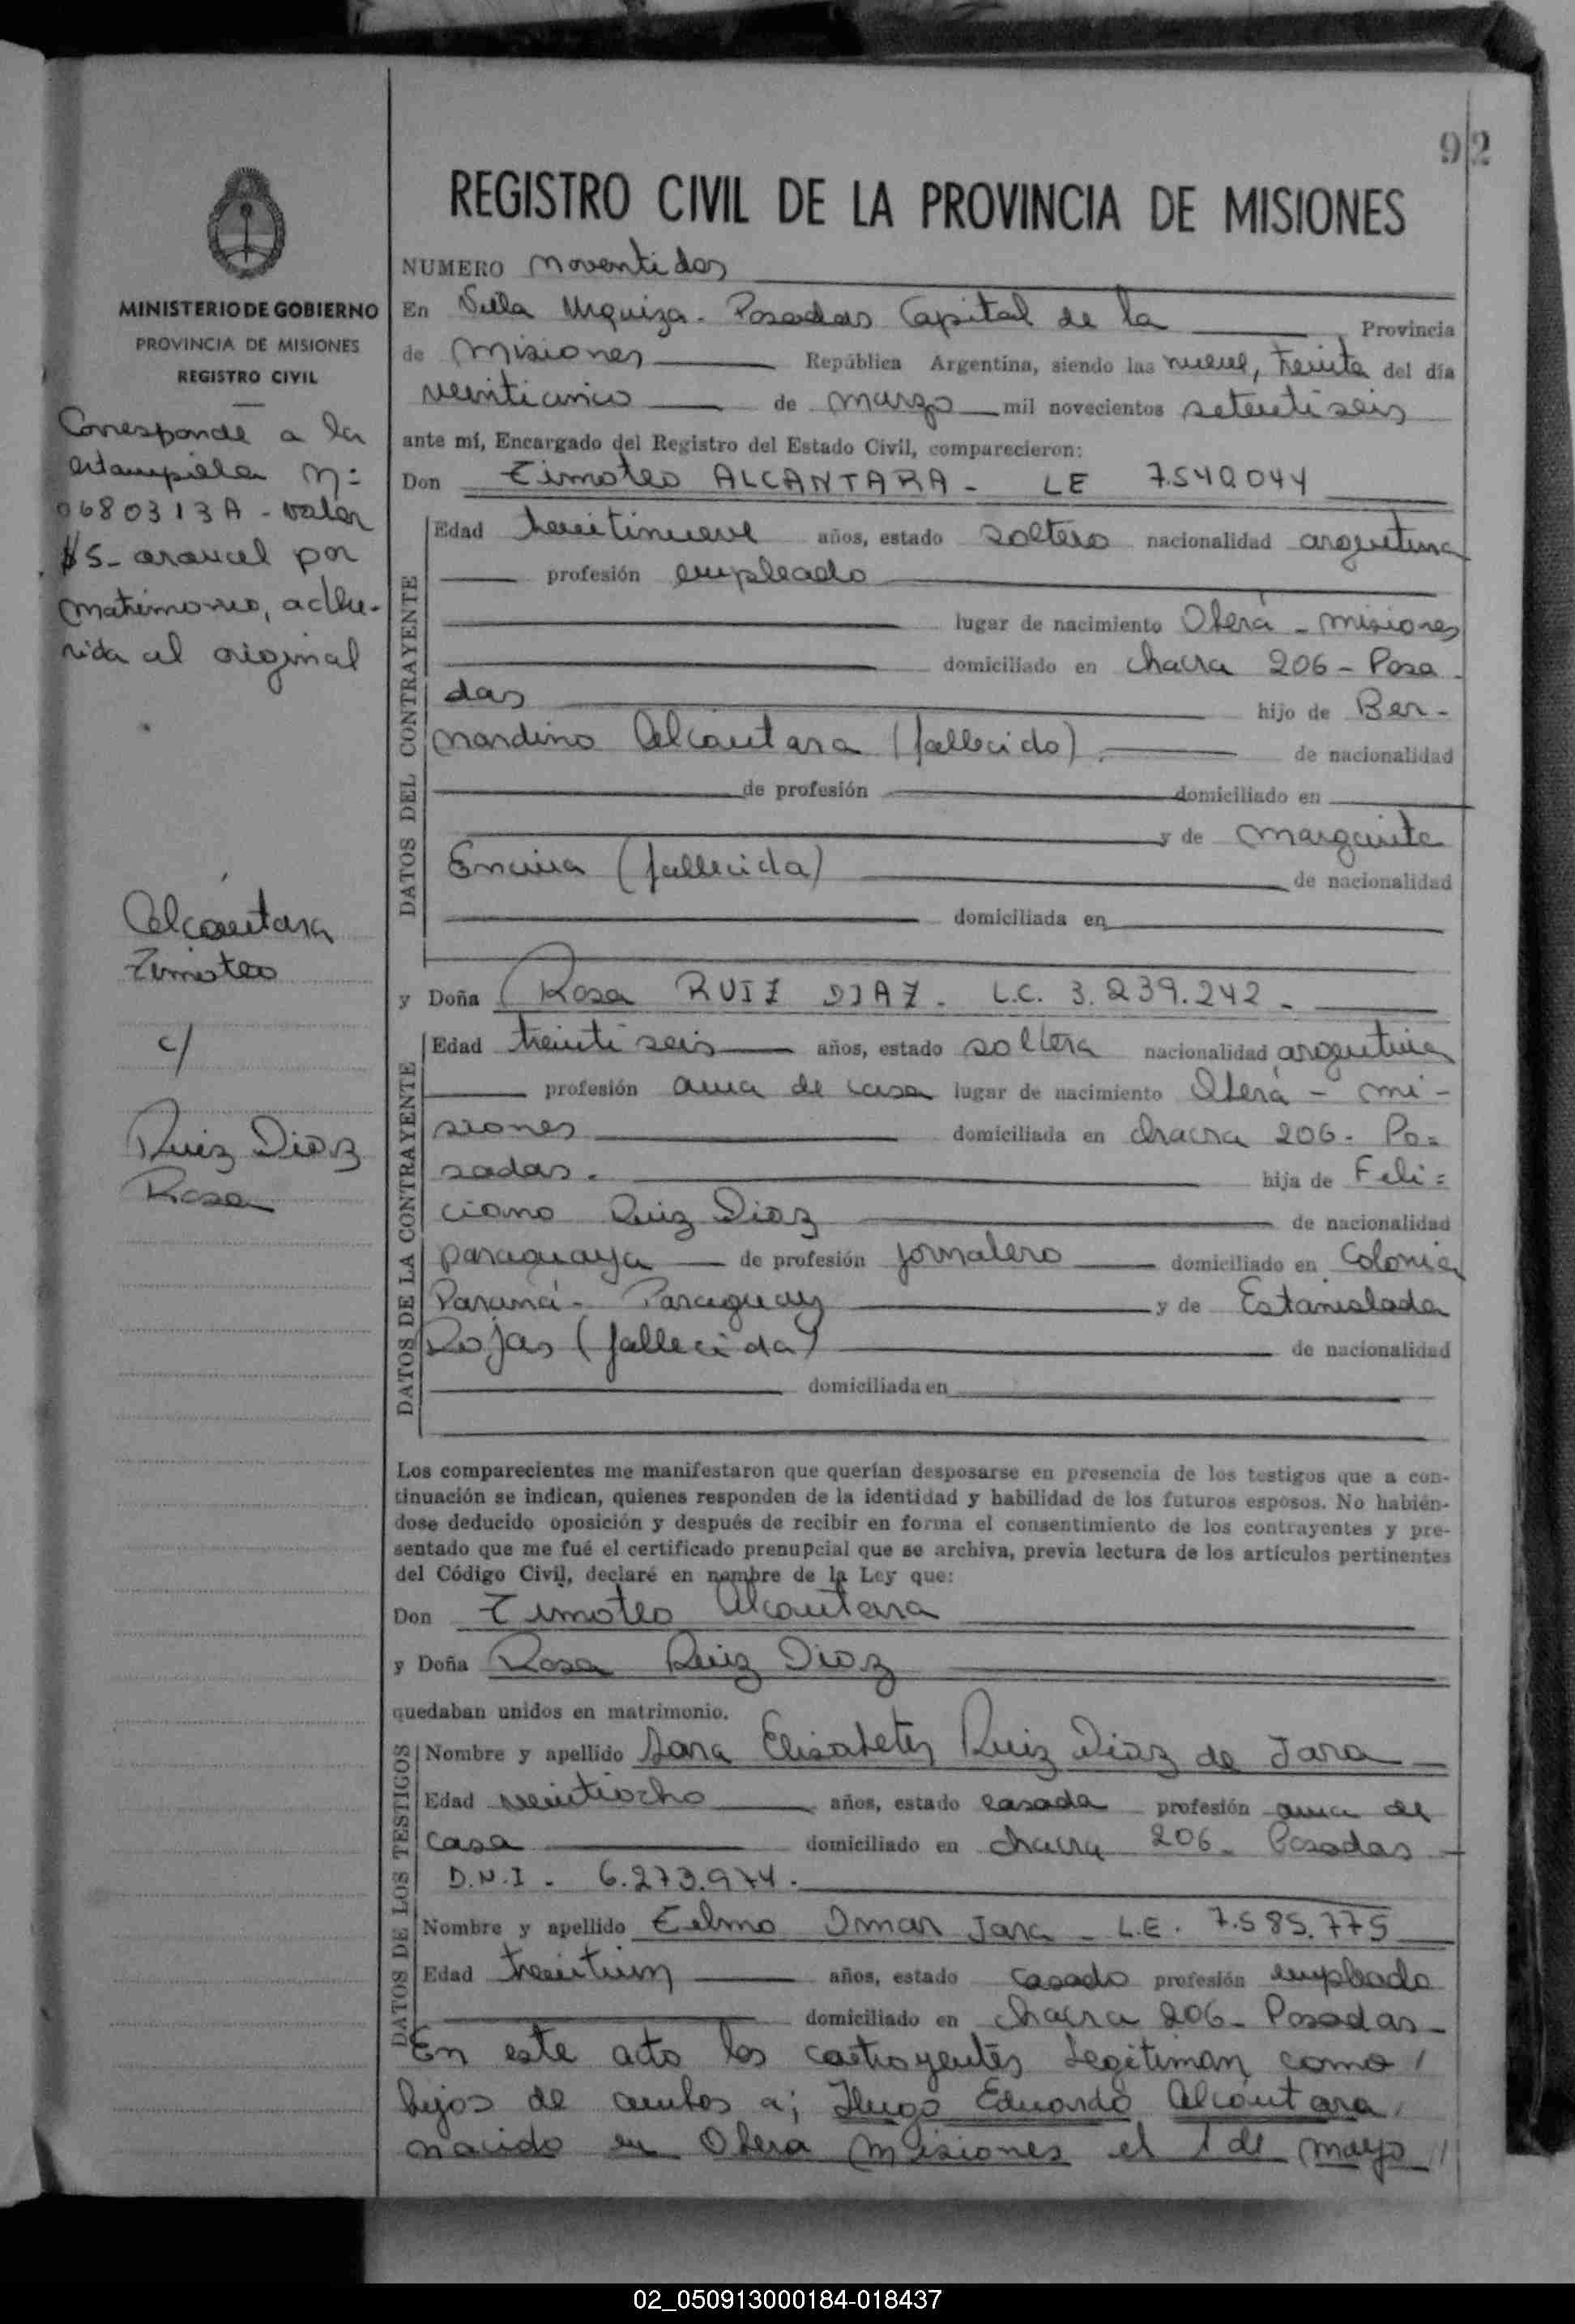 92
REGISTRO CIVIL DE LA PROVINCIA DE MISIONES
NUMERO noventidos
En Villa Urquiza. Posadas Capital de la Provincia
de Misiones República Argentina, siendo las nueve, treinta del día
veinticinco de marzo mil novecientos setentiseis
ante mí, Encargado del Registro del Estado Civil, comparecieron:
Don Timoteo ALCANTARA - LE 7.540.044
DATOS DEL CONTRAYENTE
Edad treintinueve años, estado soltero nacionalidad argentina
profesión empleado
lugar de nacimiento Oberá - Misiones
domiciliado en chacra 206 - Posa
das hijo de Ber-
nardino Alcantara (fallecido). de nacionalidad
de profesión domiciliado en
y de Margarita
Encina (fallecida) de nacionalidad
domiciliada en
y Doña Rosa RUIZ DIAZ. L.C. 3.239.242 -
DATOS DE LA CONTRAYENTE
Edad treinti seis años, estado soltera nacionalidad argentina
profesión ama de casa lugar de nacimiento Oberá - Mi-
siones domiciliada en chacra 206. Po=
sadas. hija de Feli=
ciano Ruiz Diaz de nacionalidad
paraguaya de profesión jornalero domiciliado en Colonia
Paraná - Paraguay y de Estanislada
Rojas (fallecida) de nacionalidad
domiciliada en
Los comparecientes me manifestaron que querían desposarse en presencia de los testigos que a con-
tinuación se indican, quienes responden de la identidad y habilidad de los futuros esposos. No habién-
dose deducido oposición y después de recibir en forma el consentimiento de los contrayentes y pre-
sentado que me fué el certificado prenupcial que se archiva, previa lectura de los artículos pertinentes
del Código Civil, declaré en nombre de la Ley que:
Don Timoteo Alcantara
y Doña Rosa Ruiz Diaz
quedaban unidos en matrimonio.
DATOS DE LOS TESTIGOS
Nombre y apellido Sara Elisabeth Ruiz Diaz de Jara
Edad veintiocho años, estado casada profesión ama de
casa domiciliado en chacra 206 - Posadas
D.N.I. - 6.273.974.
Nombre y apellido Telmo Omar Jara - L.E. 7.585.775
Edad treintiun años, estado casado profesión empleado
domiciliado en chacra 206 - Posadas -
En este acto los contrayentes legitiman como
hijos de ambos a; Hugo Eduardo Alcántara,
nacido en Obera Misiones el 1 de mayo //
MINISTERIO DE GOBIERNO
PROVINCIA DE MISIONES
REGISTRO CIVIL
Corresponde a la
estampilla N:
0680313A - valor
$5 - arancel por
matrimonio, adhe-
rida al original
Alcantara
Timoteo
c/
Ruiz Diaz
Rosa
02_050913000184-018437